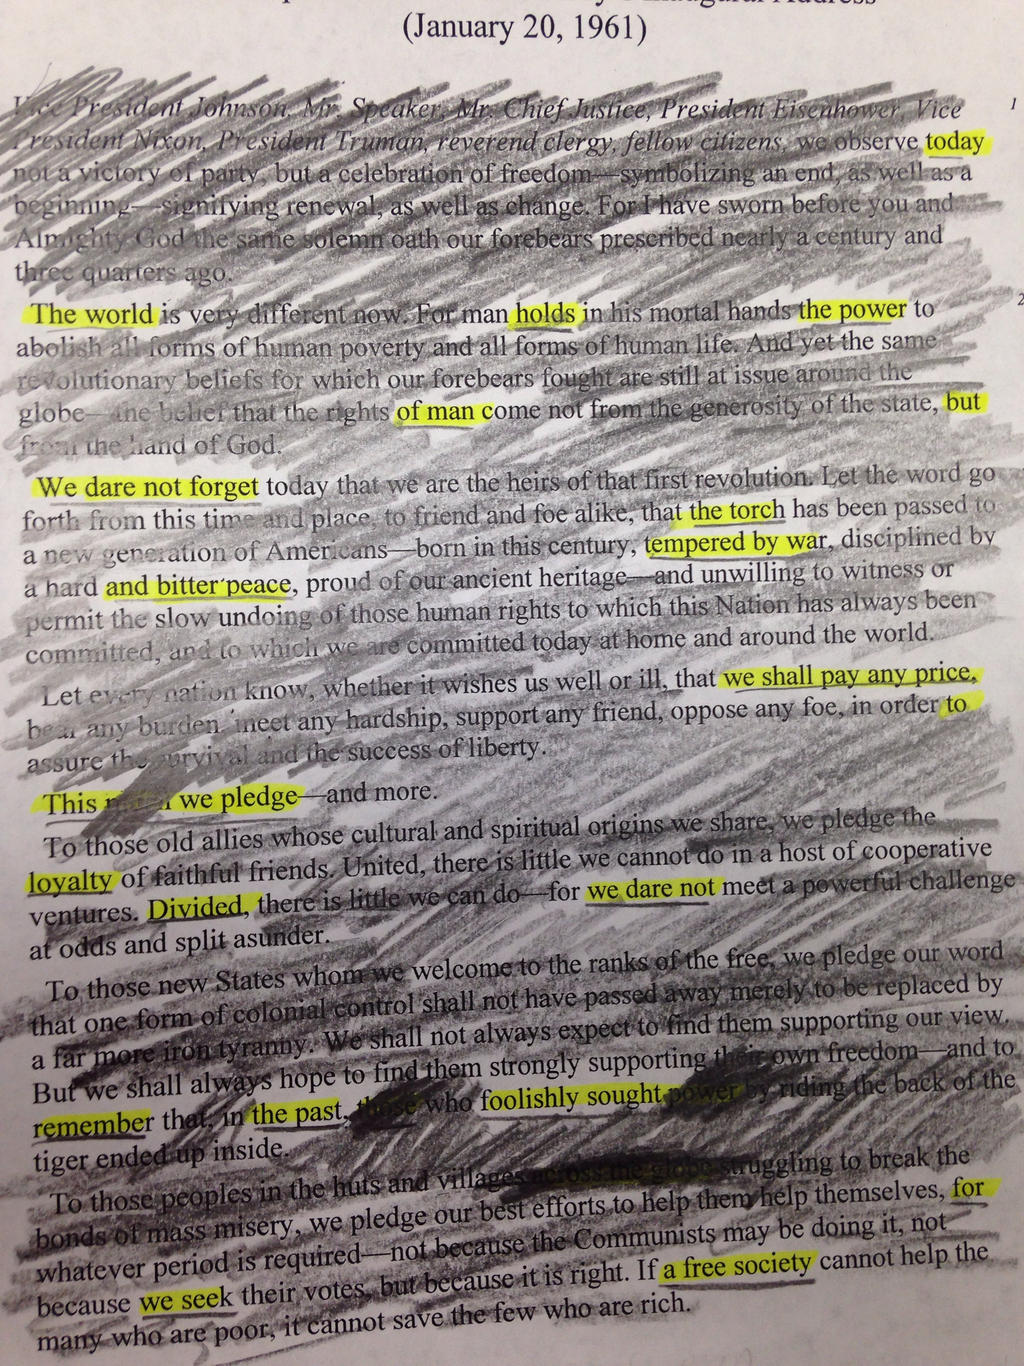 (January 20, 1961)
Vice President Johnson, Mr. Speaker, Mr. Chief Justice, President Eisenhower, Vice 1
President Nixon, President Truman, reverend clergy, fellow citizens, we observe today
not a victory of party, but a celebration of freedom—symbolizing an end, as well as a
beginning—signifying renewal, as well as change. For I have sworn before you and
Almighty God the same solemn oath our forebears prescribed nearly a century and
three quarters ago.
The world is very different now. For man holds in his mortal hands the power to 2
abolish all forms of human poverty and all forms of human life. And yet the same
revolutionary beliefs for which our forebears fought are still at issue around the
globe—the belief that the rights of man come not from the generosity of the state, but
from the hand of God.
We dare not forget today that we are the heirs of that first revolution. Let the word go
forth from this time and place, to friend and foe alike, that the torch has been passed to
a new generation of Americans—born in this century, tempered by war, disciplined by
a hard and bitter peace, proud of our ancient heritage—and unwilling to witness or
permit the slow undoing of those human rights to which this Nation has always been
committed, and to which we are committed today at home and around the world.
Let every nation know, whether it wishes us well or ill, that we shall pay any price,
bear any burden, meet any hardship, support any friend, oppose any foe, in order to
assure the survival and the success of liberty.
This we pledge—and more.
To those old allies whose cultural and spiritual origins we share, we pledge the
loyalty of faithful friends. United, there is little we cannot do in a host of cooperative
ventures. Divided, there is little we can do—for we dare not meet a powerful challenge
at odds and split asunder.
To those new States whom we welcome to the ranks of the free, we pledge our word
that one form of colonial control shall not have passed away merely to be replaced by
a far more iron tyranny. We shall not always expect to find them supporting our view.
But we shall always hope to find them strongly supporting their own freedom—and to
remember that, in the past, those who foolishly sought power by riding the back of the
tiger ended up inside.
To those peoples in the huts and villages across the globe struggling to break the
bonds of mass misery, we pledge our best efforts to help them help themselves, for
whatever period is required—not because the Communists may be doing it, not
because we seek their votes, but because it is right. If a free society cannot help the
many who are poor, it cannot save the few who are rich.